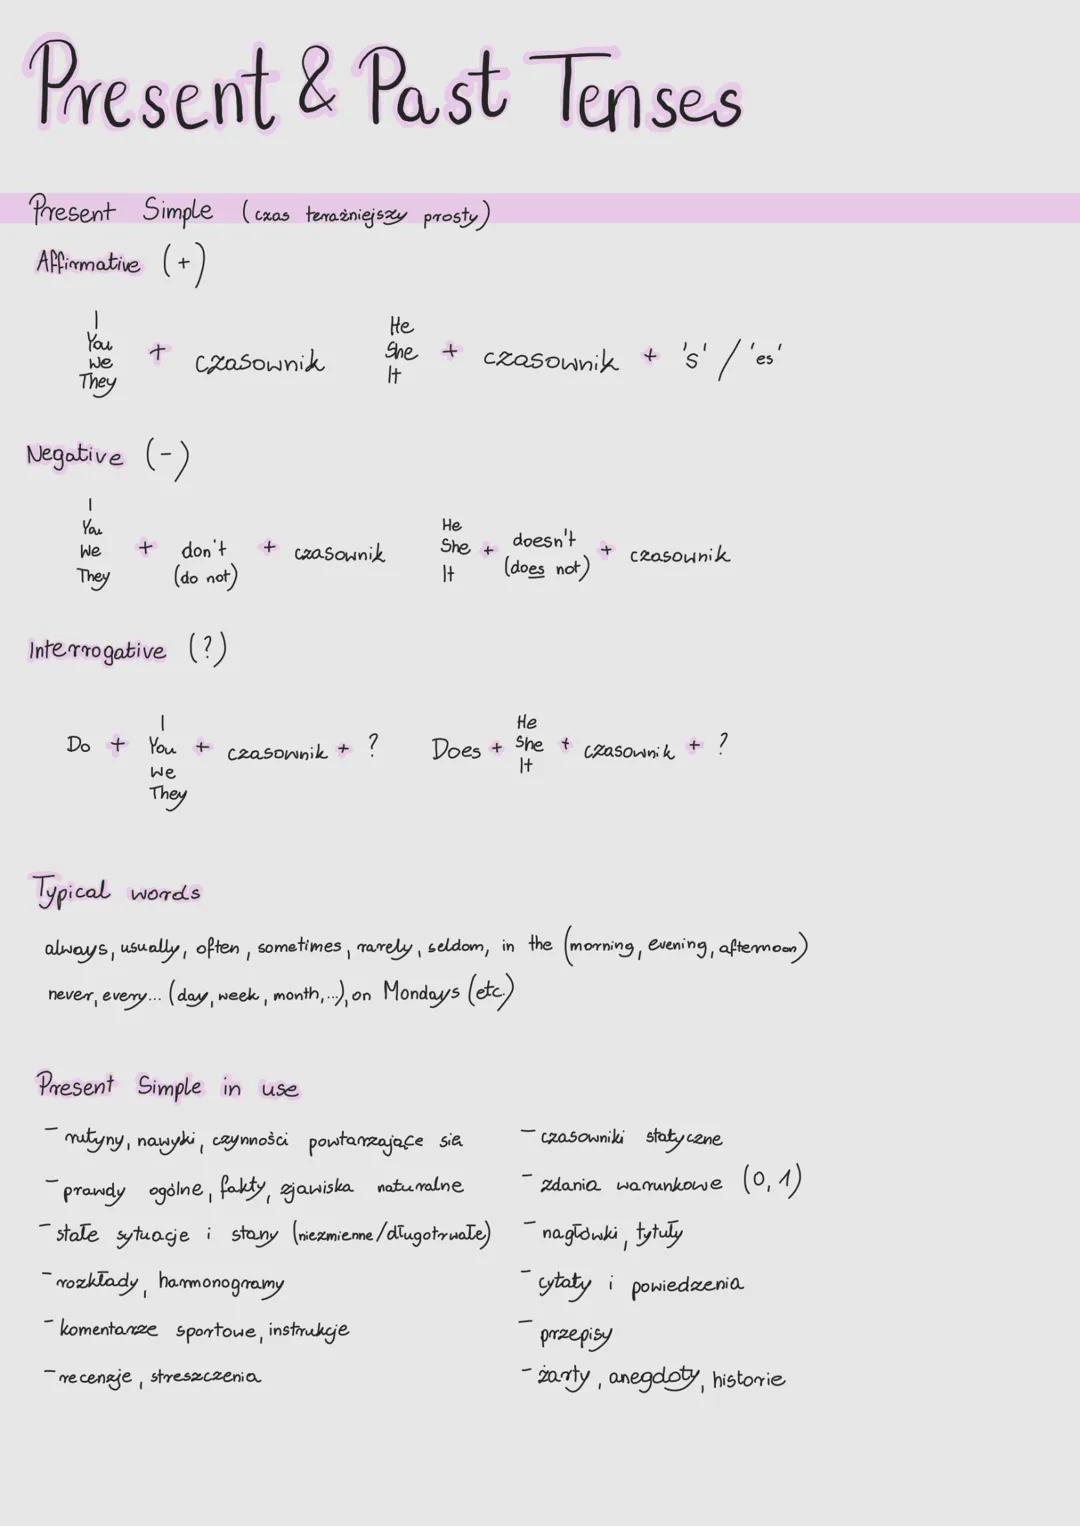 Present & Past Tenses
Present Simple (czas teraźniejszy prosty)
Affirmative (+)
I
You
We
They
+ czasownik
He
She
It
+ czasownik + 's' / 'es'
Negative (-)
I
You
We
They
+ don't (do not) + czasownik
He
She
It
+ doesn't (does not) + czasownik
Interrogative (?)
Do +
I
You
We
They
+ czasownik + ?
Does +
He
She
It
+ czasownik + ?
Typical words
always, usually, often, sometimes, rarely, seldom, in the (morning, evening, afternoon)
never, every... (day, week, month,...), on Mondays (etc.)
Present Simple in use
- rutyny, nawyki, czynności powtarzające się
- prawdy ogólne, fakty, zjawiska naturalne
- stałe sytuacje i stany (niezmienne/długotrwałe)
- rozkłady, harmonogramy
- komentarze sportowe, instrukcje
- recenzje, streszczenia
- czasowniki statyczne
- zdania warunkowe (0, 1)
- nagłówki, tytuły
- cytaty i powiedzenia
- przepisy
- żarty, anegdoty, historie